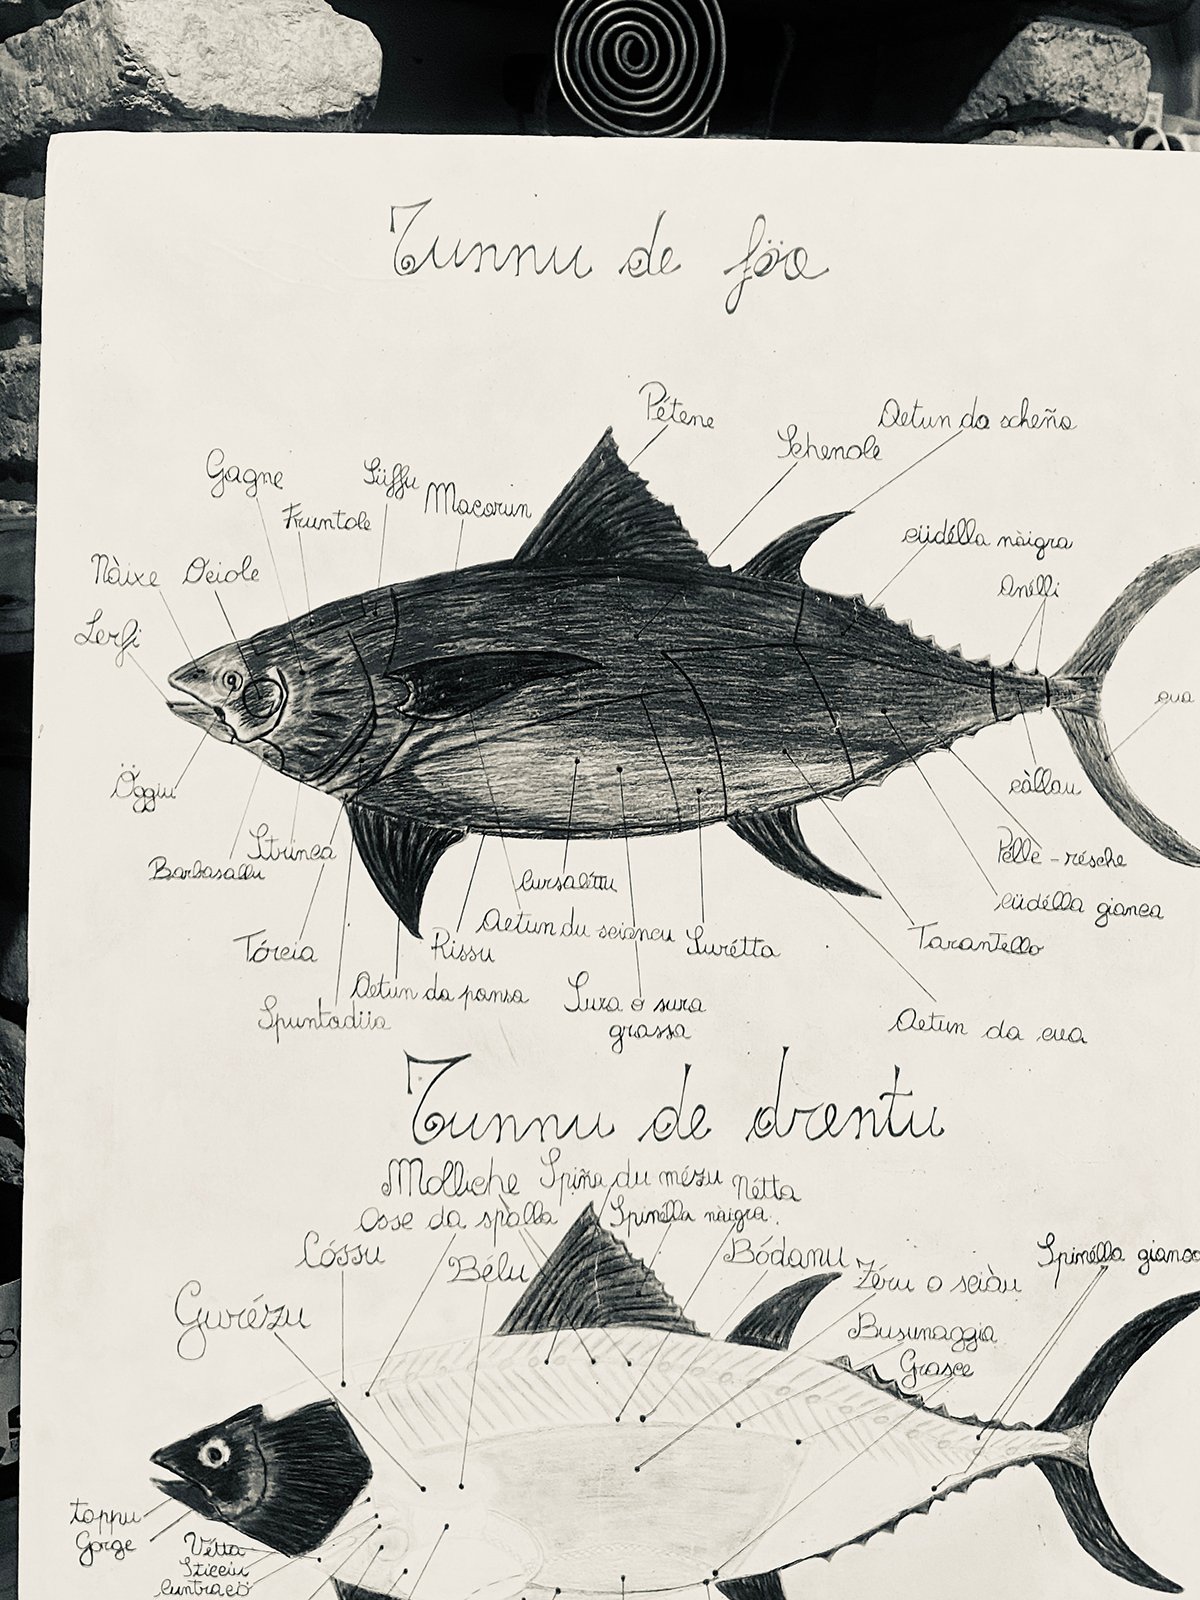 Tunnu de föa
Pétene
Aetun da scheña
Schenale
Gagne
Süffu
Macarun
Fruntale
cüdélla nàigra
Nàixe
Ociole
Anélli
Lerfi
cua
Öggiu
càllau
Strinca
Barbasallu
Pelle-résche
Cursaléttu
cüdélla gianca
Aetun du sciancu
Surétta
Tarantello
Tórcia
Rissu
Aetun da pansa
Sura o sura
grassa
Spuntadüa
Aetun da cua
Tunnu de drentu
Molliche
Spiña du mézu
Nétta
Osse da spalla
Spinélla nàigra
Cóssu
Bélu
Bódanu
Zéru o sciàu
Spinélla gianca
Gurézu
Busunaggia
Grasce
tappu
Gorge
Vétta
Sticciu
Cuntracö